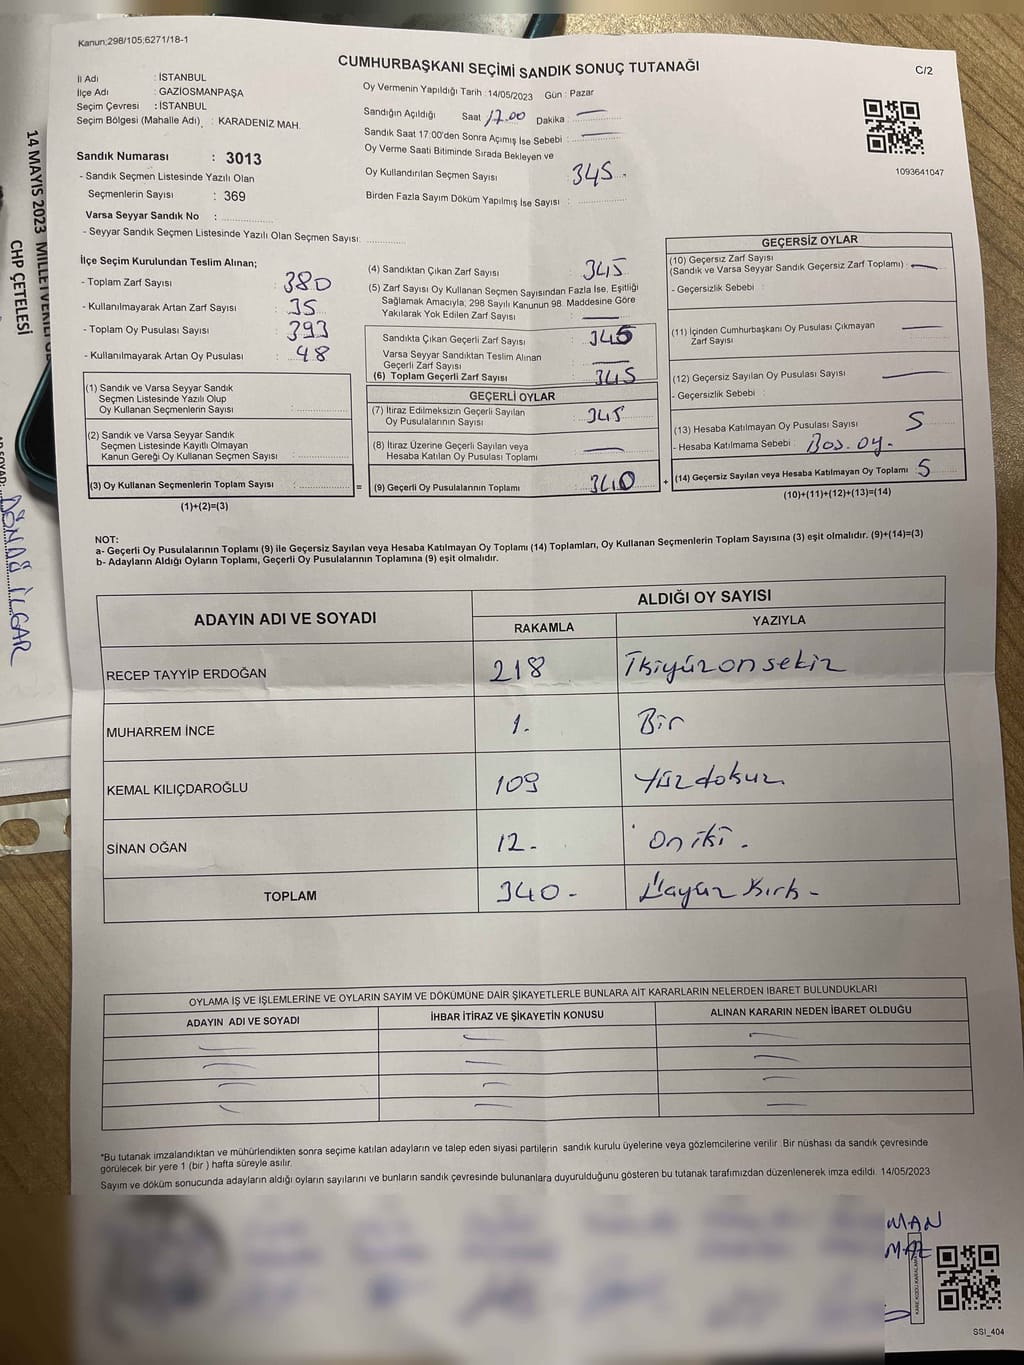 Kanun;298/105;6271/18-1
CUMHURBAŞKANI SEÇİMİ SANDIK SONUÇ TUTANAĞI
C/2
İl Adı : İSTANBUL
İlçe Adı : GAZİOSMANPAŞA
Seçim Çevresi : İSTANBUL
Seçim Bölgesi (Mahalle Adı) : KARADENİZ MAH.
Sandık Numarası : 3013
- Sandık Seçmen Listesinde Yazılı Olan
Seçmenlerin Sayısı : 369
Varsa Seyyar Sandık No :
- Seyyar Sandık Seçmen Listesinde Yazılı Olan Seçmen Sayısı:
Oy Vermenin Yapıldığı Tarih : 14/05/2023 Gün : Pazar
Sandığın Açıldığı Saat 17.00 Dakika :
Sandık Saat 17:00'den Sonra Açımış İse Sebebi :
Oy Verme Saati Bitiminde Sırada Bekleyen ve
Oy Kullandırılan Seçmen Sayısı : 345
Birden Fazla Sayım Döküm Yapılmış İse Sayısı :
1093641047
İlçe Seçim Kurulundan Teslim Alınan;
- Toplam Zarf Sayısı : 380
- Kullanılmayarak Artan Zarf Sayısı : 35
- Toplam Oy Pusulası Sayısı : 393
- Kullanılmayarak Artan Oy Pusulası : 48
(1) Sandık ve Varsa Seyyar Sandık
Seçmen Listesinde Yazılı Olup
Oy Kullanan Seçmenlerin Sayısı :
(2) Sandık ve Varsa Seyyar Sandık
Seçmen Listesinde Kayıtlı Olmayan
Kanun Gereği Oy Kullanan Seçmen Sayısı :
(3) Oy Kullanan Seçmenlerin Toplam Sayısı : =
(1)+(2)=(3)
(4) Sandıktan Çıkan Zarf Sayısı : 345
(5) Zarf Sayısı Oy Kullanan Seçmen Sayısından Fazla İse, Eşitliği
Sağlamak Amacıyla; 298 Sayılı Kanunun 98. Maddesine Göre
Yakılarak Yok Edilen Zarf Sayısı :
Sandıkta Çıkan Geçerli Zarf Sayısı : 345
Varsa Seyyar Sandıktan Teslim Alınan
Geçerli Zarf Sayısı :
(6) Toplam Geçerli Zarf Sayısı : 345
GEÇERLİ OYLAR
(7) İtiraz Edilmeksizin Geçerli Sayılan
Oy Pusulalarının Sayısı : 345
(8) İtiraz Üzerine Geçerli Sayılan veya
Hesaba Katılan Oy Pusulası Toplamı :
(9) Geçerli Oy Pusulalarının Toplamı : 340 +
GEÇERSİZ OYLAR
(10) Geçersiz Zarf Sayısı
(Sandık ve Varsa Seyyar Sandık Geçersiz Zarf Toplamı) :
- Geçersizlik Sebebi :
(11) İçinden Cumhurbaşkanı Oy Pusulası Çıkmayan
Zarf Sayısı :
(12) Geçersiz Sayılan Oy Pusulası Sayısı :
- Geçersizlik Sebebi :
(13) Hesaba Katılmayan Oy Pusulası Sayısı : 5
- Hesaba Katılmama Sebebi : Boş. oy.
(14) Geçersiz Sayılan veya Hesaba Katılmayan Oy Toplamı : 5
(10)+(11)+(12)+(13)=(14)
NOT:
a- Geçerli Oy Pusulalarının Toplamı (9) ile Geçersiz Sayılan veya Hesaba Katılmayan Oy Toplamı (14) Toplamları, Oy Kullanan Seçmenlerin Toplam Sayısına (3) eşit olmalıdır. (9)+(14)=(3)
b- Adayların Aldığı Oyların Toplamı, Geçerli Oy Pusulalarının Toplamına (9) eşit olmalıdır.
ADAYIN ADI VE SOYADI
ALDIĞI OY SAYISI
RAKAMLA YAZIYLA
RECEP TAYYİP ERDOĞAN 218 İkiyüzonsekiz
MUHARREM İNCE 1. Bir
KEMAL KILIÇDAROĞLU 109 Yüzdokuz
SİNAN OĞAN 12. Oniki.
TOPLAM 340- Üçyüz kırk-
OYLAMA İŞ VE İŞLEMLERİNE VE OYLARIN SAYIM VE DÖKÜMÜNE DAİR ŞİKAYETLERLE BUNLARA AİT KARARLARIN NELERDEN İBARET BULUNDUKLARI
ADAYIN ADI VE SOYADI
İHBAR İTİRAZ VE ŞİKAYETİN KONUSU
ALINAN KARARIN NEDEN İBARET OLDUĞU
*Bu tutanak imzalandıktan ve mühürlendikten sonra seçime katılan adayların ve talep eden siyasi partilerin sandık kurulu üyelerine veya gözlemcilerine verilir. Bir nüshası da sandık çevresinde
görülecek bir yere 1 (bir ) hafta süreyle asılır.
Sayım ve döküm sonucunda adayların aldığı oyların sayılarını ve bunların sandık çevresinde bulunanlara duyurulduğunu gösteren bu tutanak tarafımızdan düzenlenerek imza edildi. 14/05/2023
MAN
SSI_404
14 MAYIS 2023
CHP ÇETELESİ
İLGAR